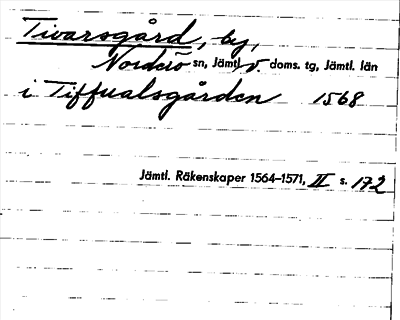 Tivarsgård, by,
Norderö sn, Jämtl. v. doms. tg, Jämtl. län
i Tiffualsgården 1568
Jämtl. Räkenskaper 1564–1571, II s. 172